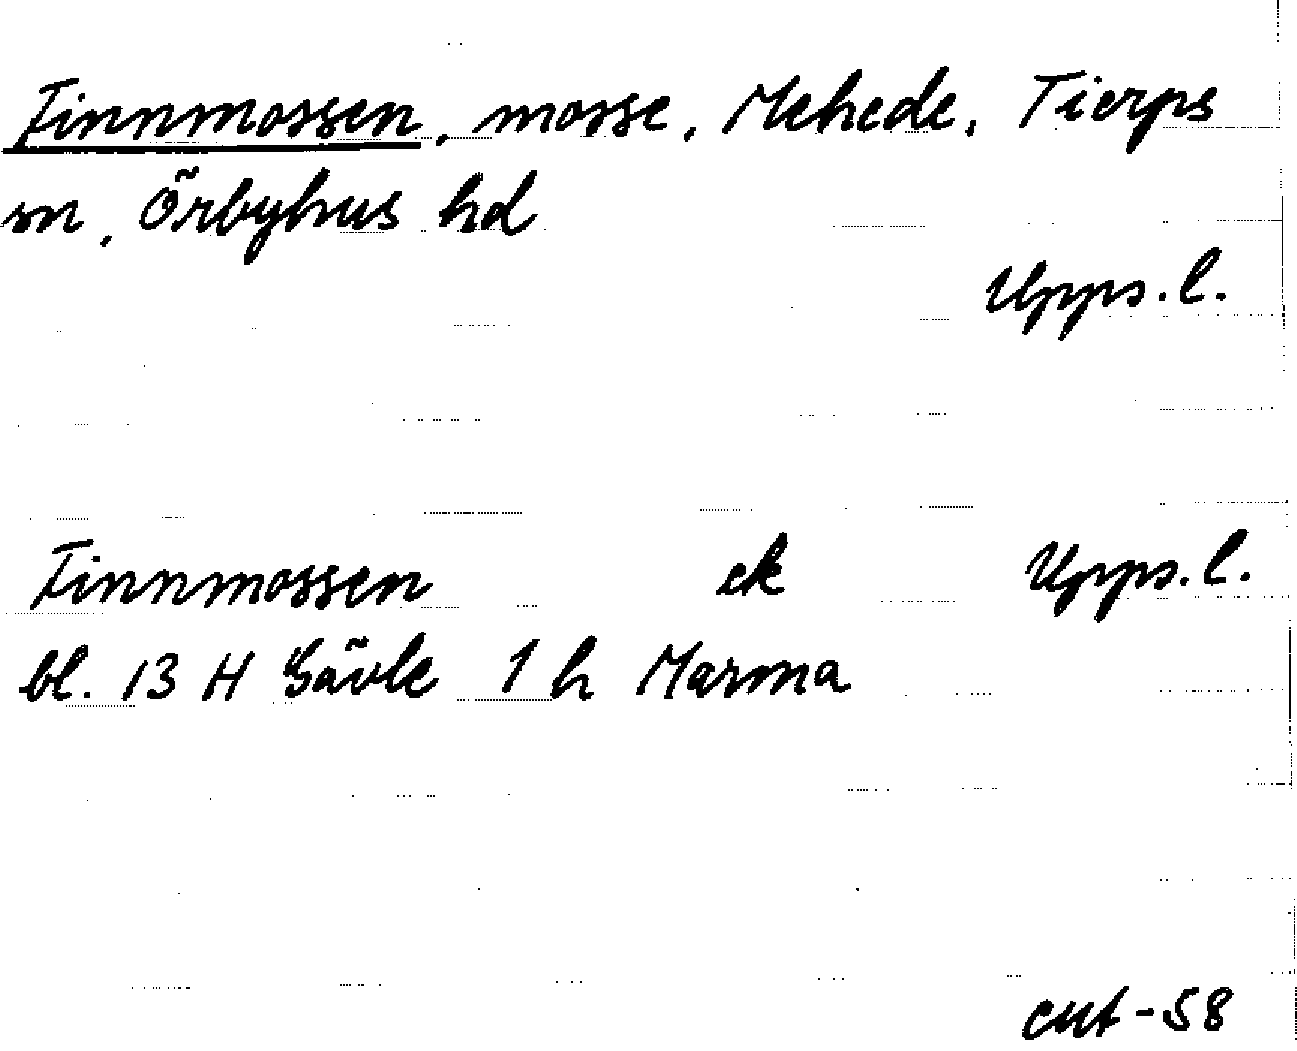 Finnmossen, mosse, Mehede, Tierps
sn, Örbyhus hd
Upps. l.
Finnmossen ek Upps. l.
bl. 13 H Gävle 1 h Marma
-58